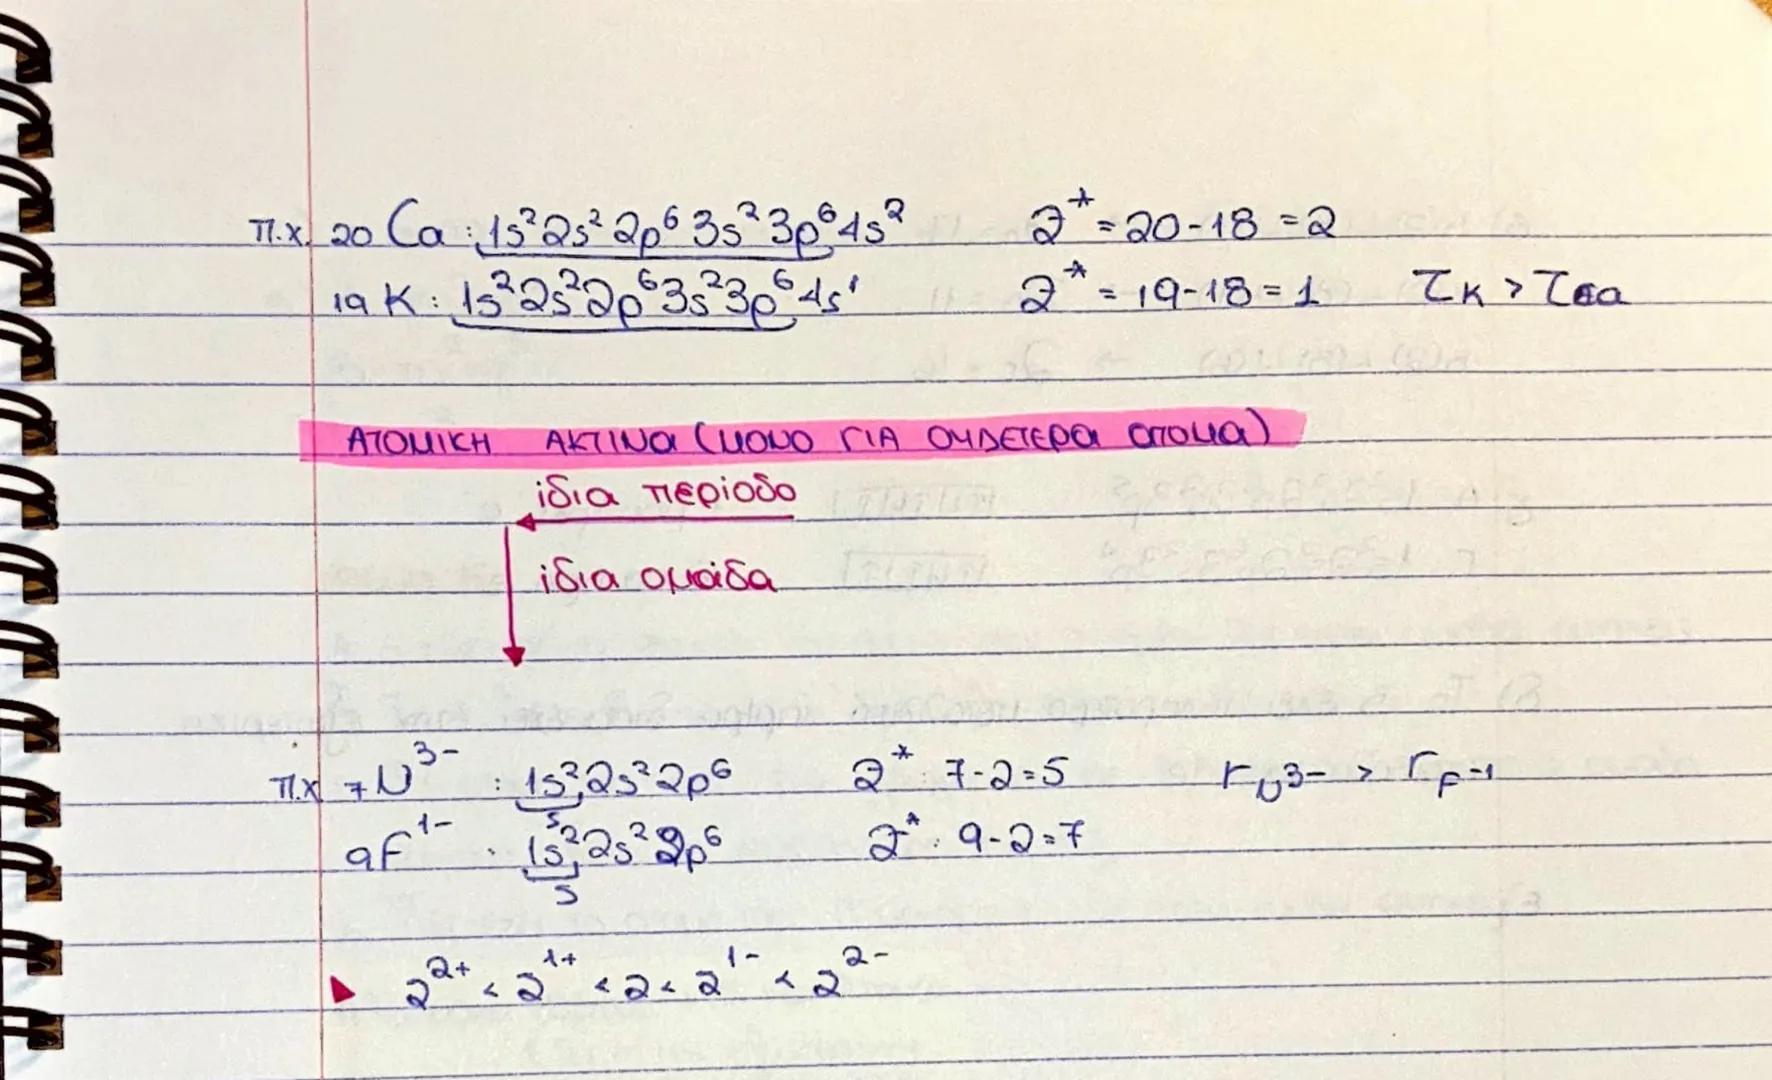 π.χ. ₂₀Ca: 1s²2s²2p⁶3s²3p⁶4s² Z* = 20-18 = 2
₁₉K: 1s²2s²2p⁶3s²3p⁶4s¹ Z* = 19-18 = 1 rK > rCa
ΑΤΟΜΙΚΗ ΑΚΤΙΝα (ΜΟΝΟ ΓΙΑ ΟΥΔΕΤΕΡα αΤΟΜα)
ίδια περίοδο
ίδια ομάδα
π.χ ₇N³⁻ : 1s²2s²2p⁶ Z* : 7-2=5 rN3- > rF-1
s
₉F¹⁻ : 1s²2s²2p⁶ Z* : 9-2=7
s
Z²⁺ < Z¹⁺ < Z < Z¹⁻ < Z²⁻